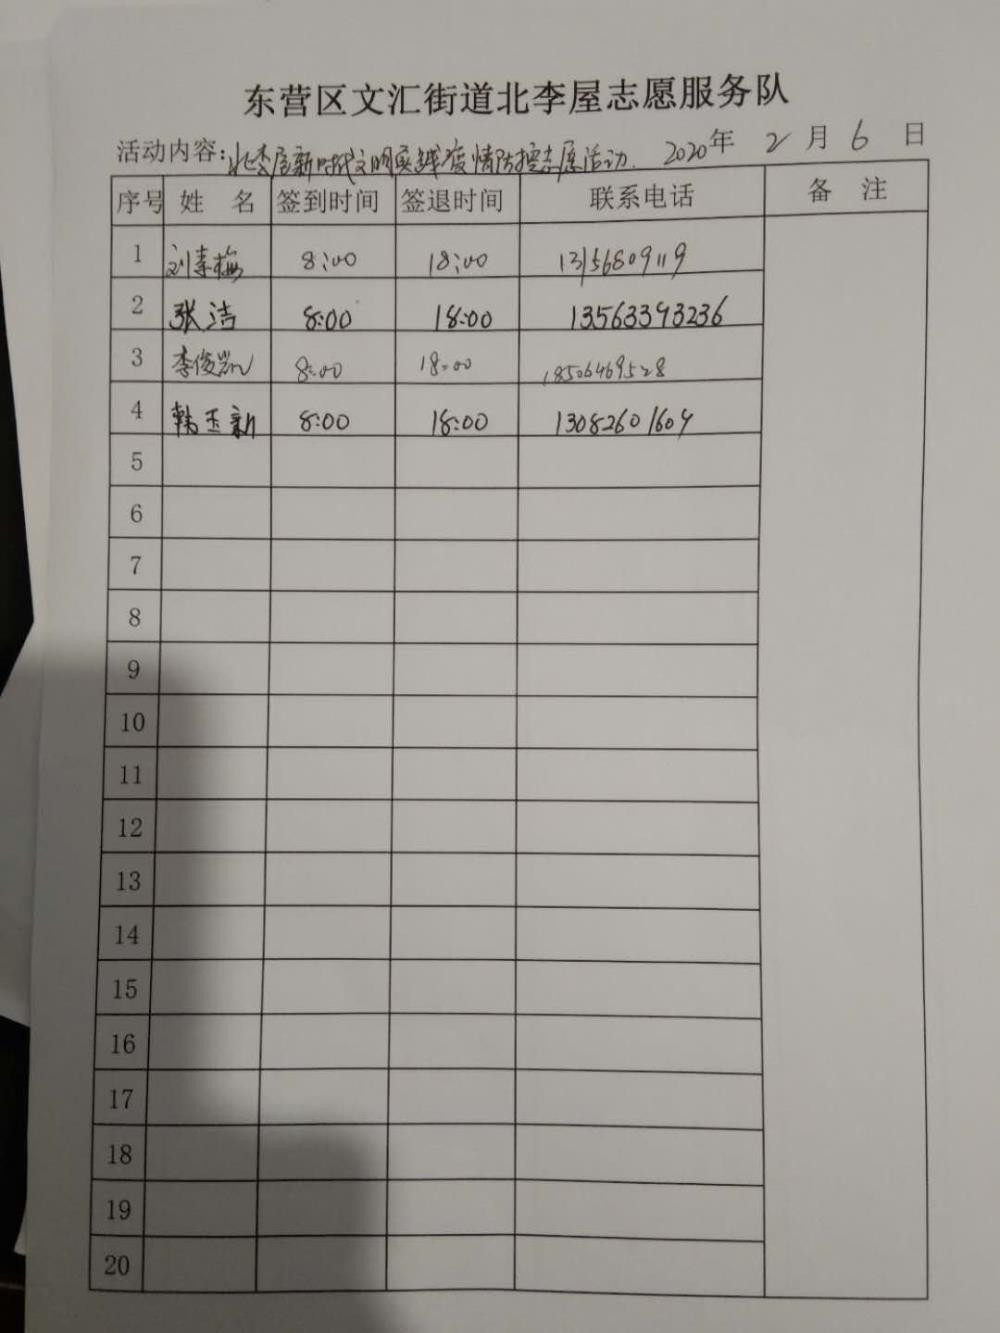 东营区文汇街道北李屋志愿服务队
活动内容:北李屋新时代文明实践疫情防控志愿活动. 2020年 2月 6日
序号 姓 名 签到时间 签退时间 联系电话 备 注
1 刘素梅 8:00 18:00 13156809119
2 张洁 8:00 18:00 13563393236
3 李俊岩 8:00 18:00 18506469528
4 韩玉新 8:00 18:00 13082601609
5
6
7
8
9
10
11
12
13
14
15
16
17
18
19
20